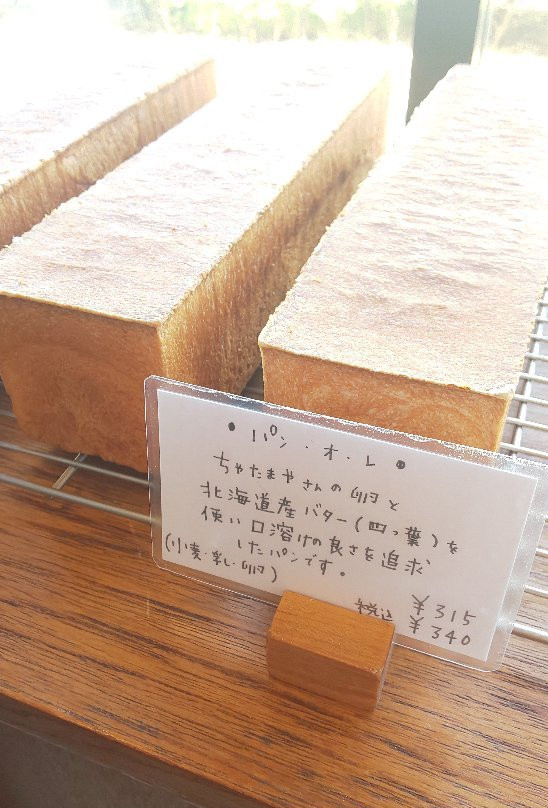 • パン・オ・レ •
ちゃたまやさんの卵と
北海道産バター(四つ葉)を
使い口溶けの良さを追求
したパンです。
(小麦・乳・卵)
¥315
税込 ¥340